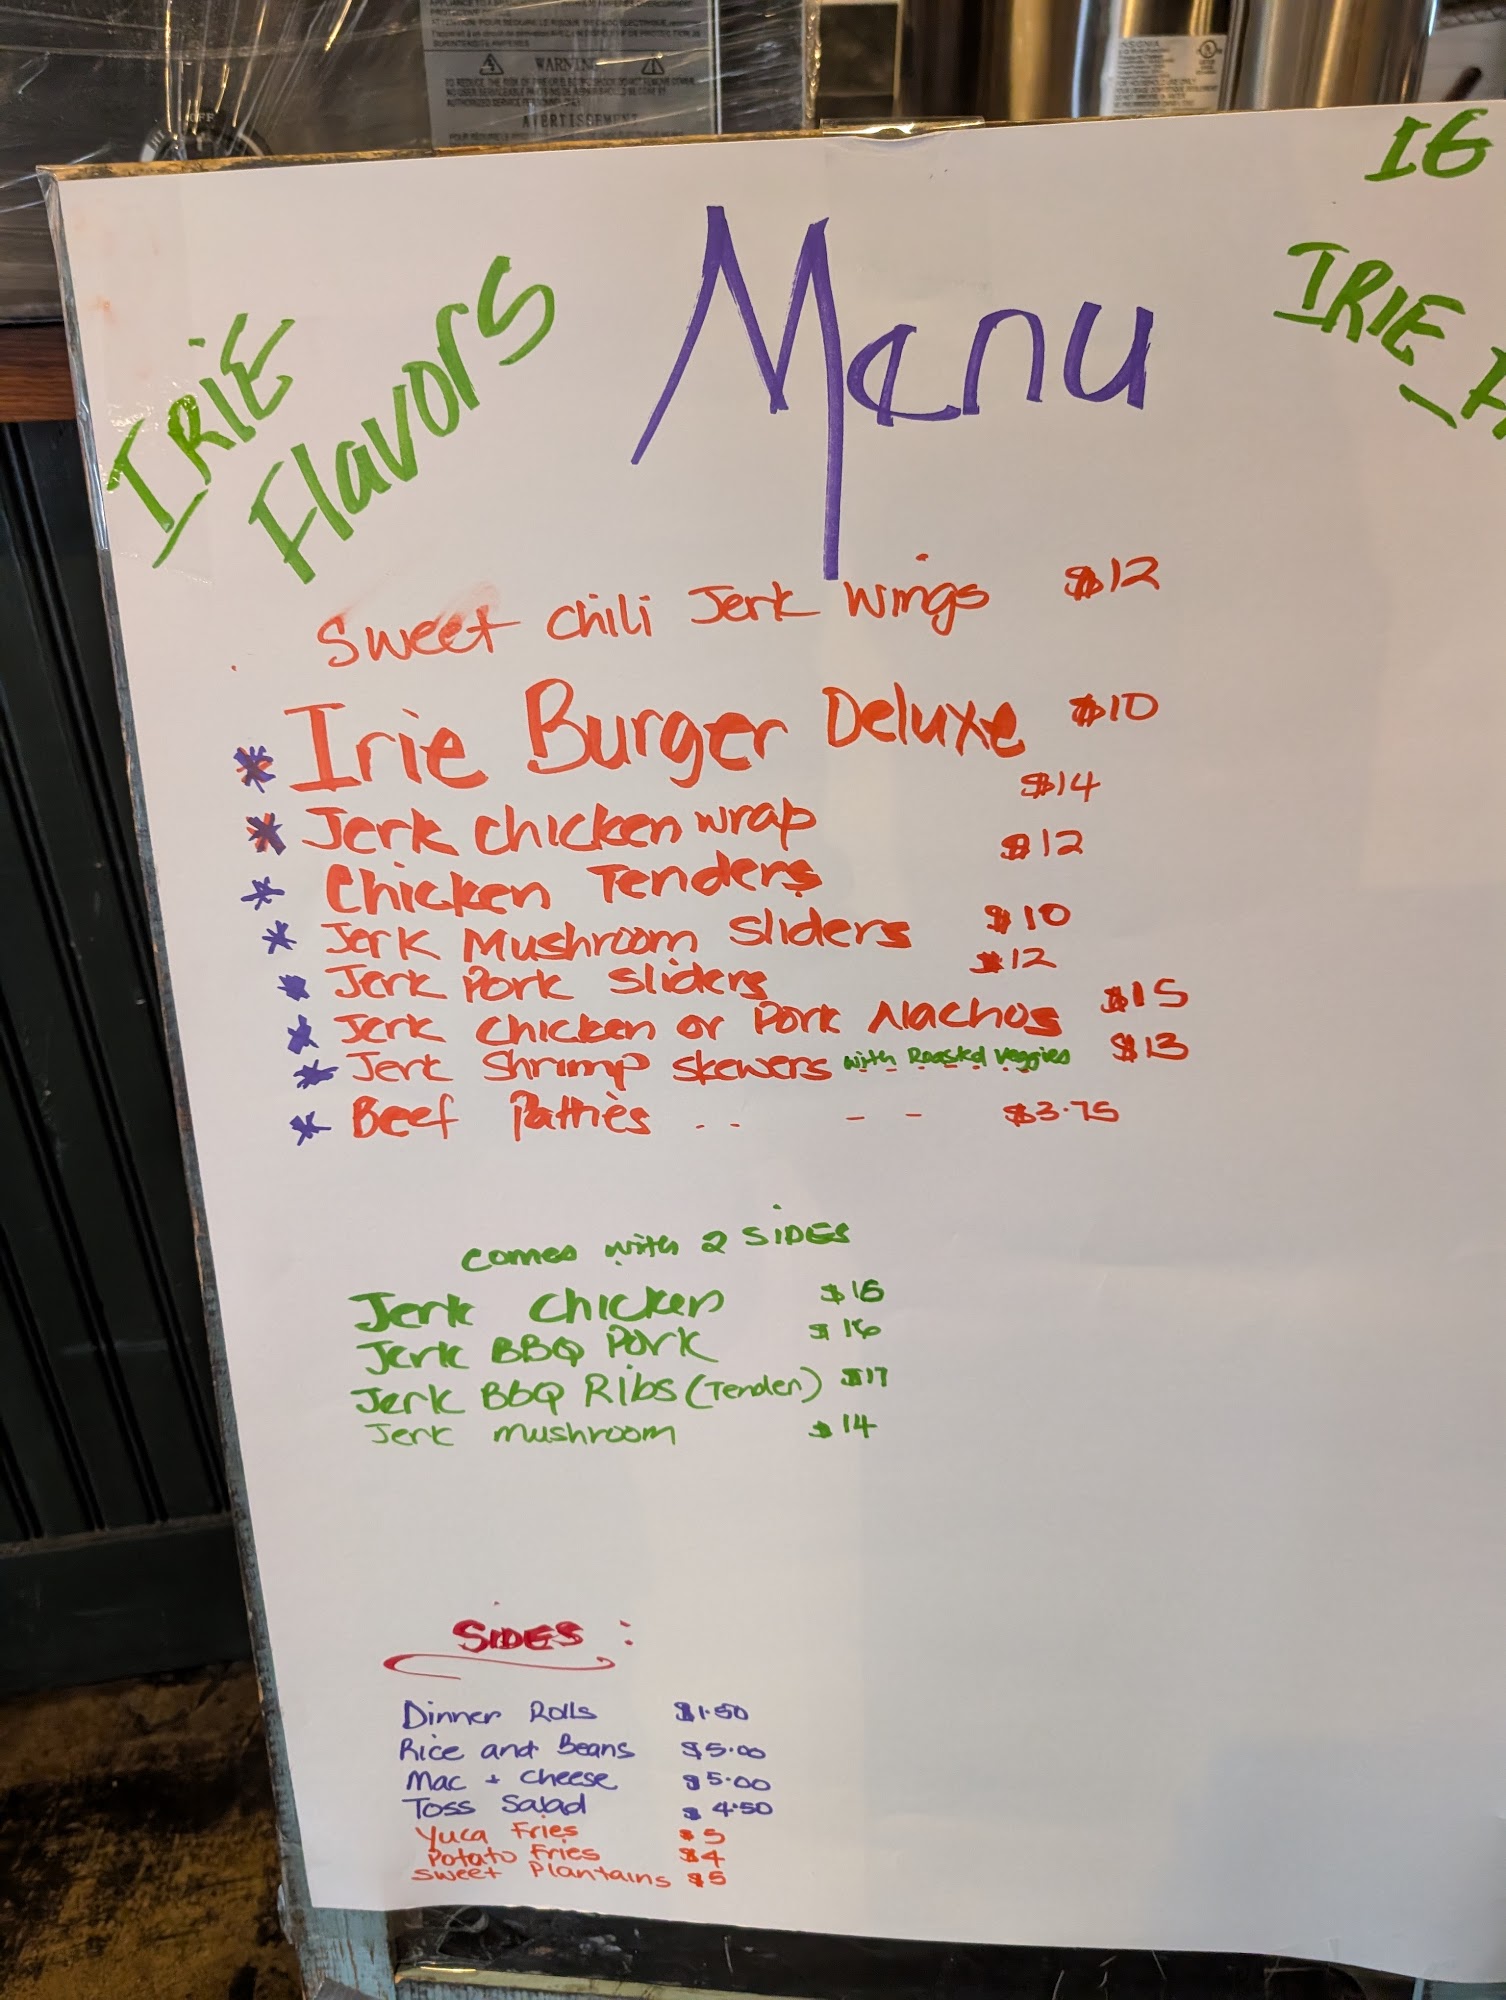 WARNING
AVERTISSEMENT
OFF
INSIGNIA
IG
IRIE
Flavors
Menu
IRIE_
Sweet Chili Jerk Wings $12
* Irie Burger Deluxe $10
* Jerk Chicken wrap $14
* Chicken Tenders $12
* Jerk Mushroom Sliders $10
* Jerk Pork Sliders $12
* Jerk Chicken or Pork Nachos $15
* Jerk Shrimp Skewers with Roasted Veggies $13
* Beef Patties .. - - $3.75
Comes with 2 SIDES
Jerk Chicken $16
Jerk BBQ Pork $16
Jerk BBQ Ribs (Tender) $17
Jerk mushroom $14
SIDES :
Dinner Rolls $1.50
Rice and Beans $5.00
Mac + Cheese $5.00
Toss Salad $4.50
Yuca Fries $5
Potato Fries $4
Sweet Plantains $5